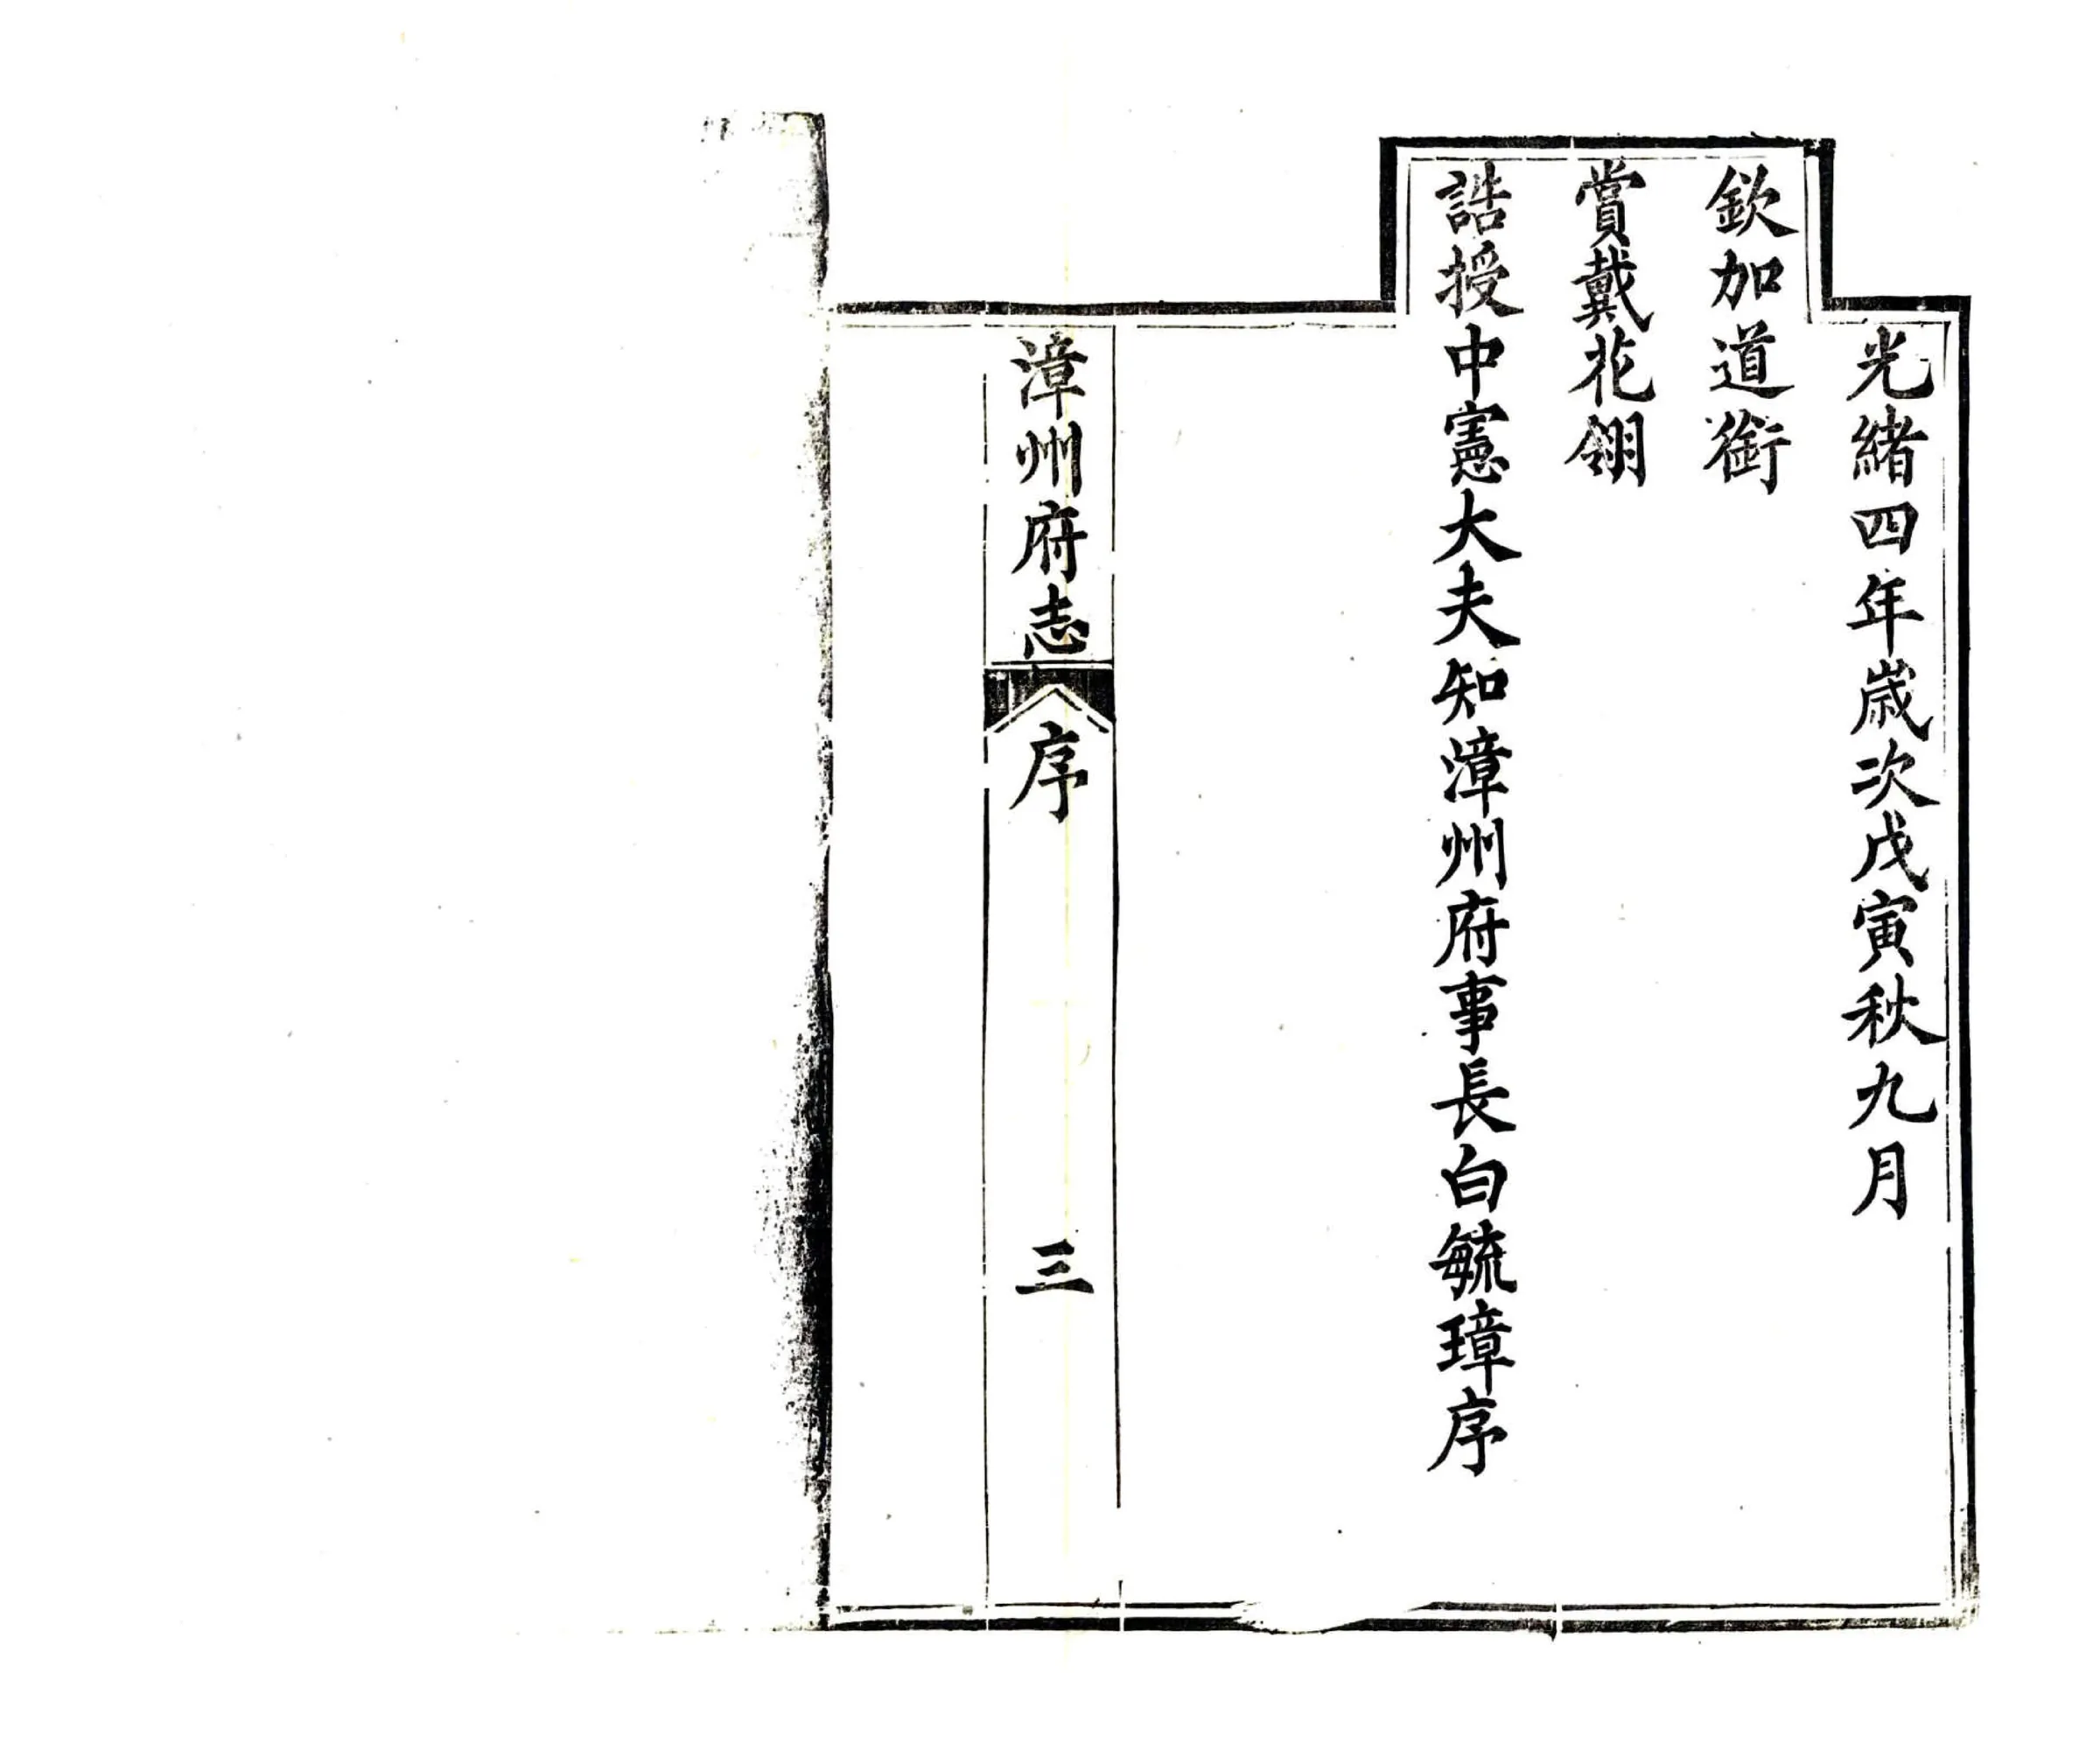 光緒四年歲次戊寅秋九月
欽加道銜
賞戴花翎
誥授中憲大夫知漳州府事長白毓璋序
漳州府志
序
三